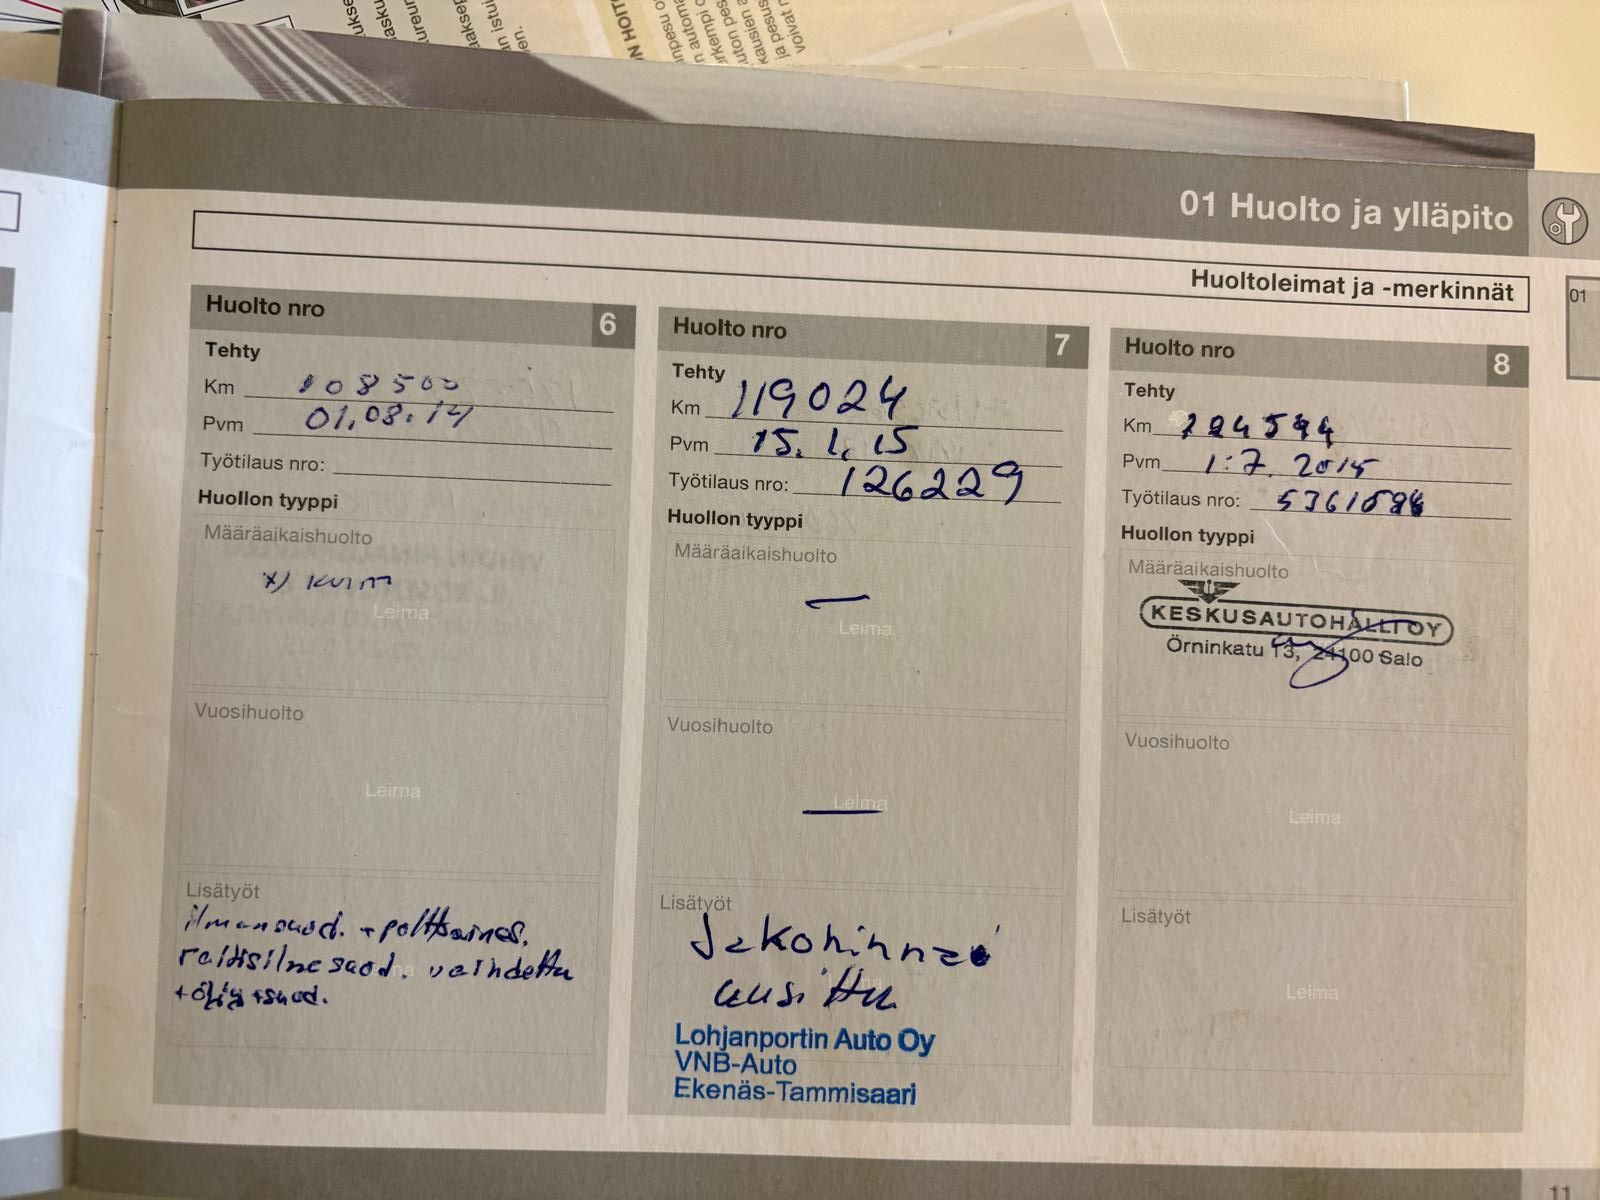 01 Huolto ja ylläpito
Huoltoleimat ja -merkinnät
01
Huolto nro 6
Tehty
Km 108500
Pvm 01.08.14
Työtilaus nro:
Huollon tyyppi
Määräaikaishuolto
Leima
Vuosihuolto
Leima
Lisätyöt
ilmansuod. + polttoaines.
raitisilmasuod. vaihdettu
+ öljy + suod.
Huolto nro 7
Tehty
Km 119024
Pvm 15.1.15
Työtilaus nro: 126229
Huollon tyyppi
Määräaikaishuolto
Leima
Vuosihuolto
Leima
Lisätyöt
Jakohihna
uusittu
Lohjanportin Auto Oy
VNB-Auto
Ekenäs-Tammisaari
Huolto nro 8
Tehty
Km
Pvm 1.7.2015
Työtilaus nro:
Huollon tyyppi
Määräaikaishuolto
KESKUSAUTOHALLI OY
Örninkatu 13, 24100 Salo
Vuosihuolto
Leima
Lisätyöt
Leima
11